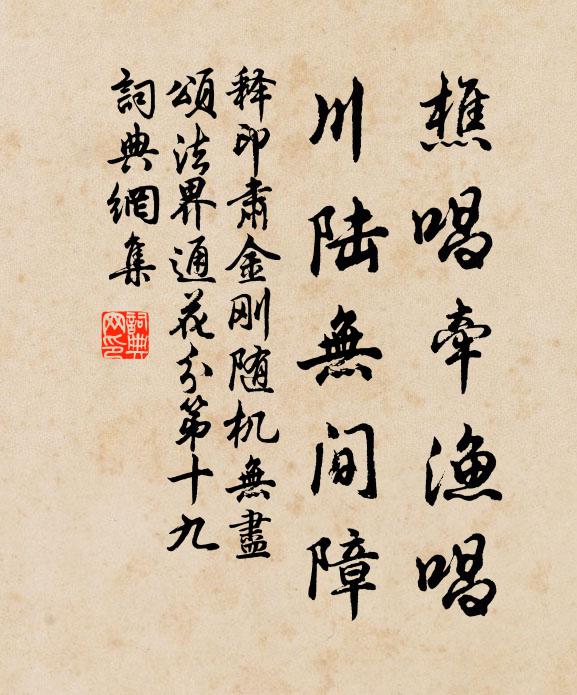 樵唱牵渔唱
川陆無间障
释印肃金刚随机無盡
頌法界通花分第十九
詞典網集
詞典網印